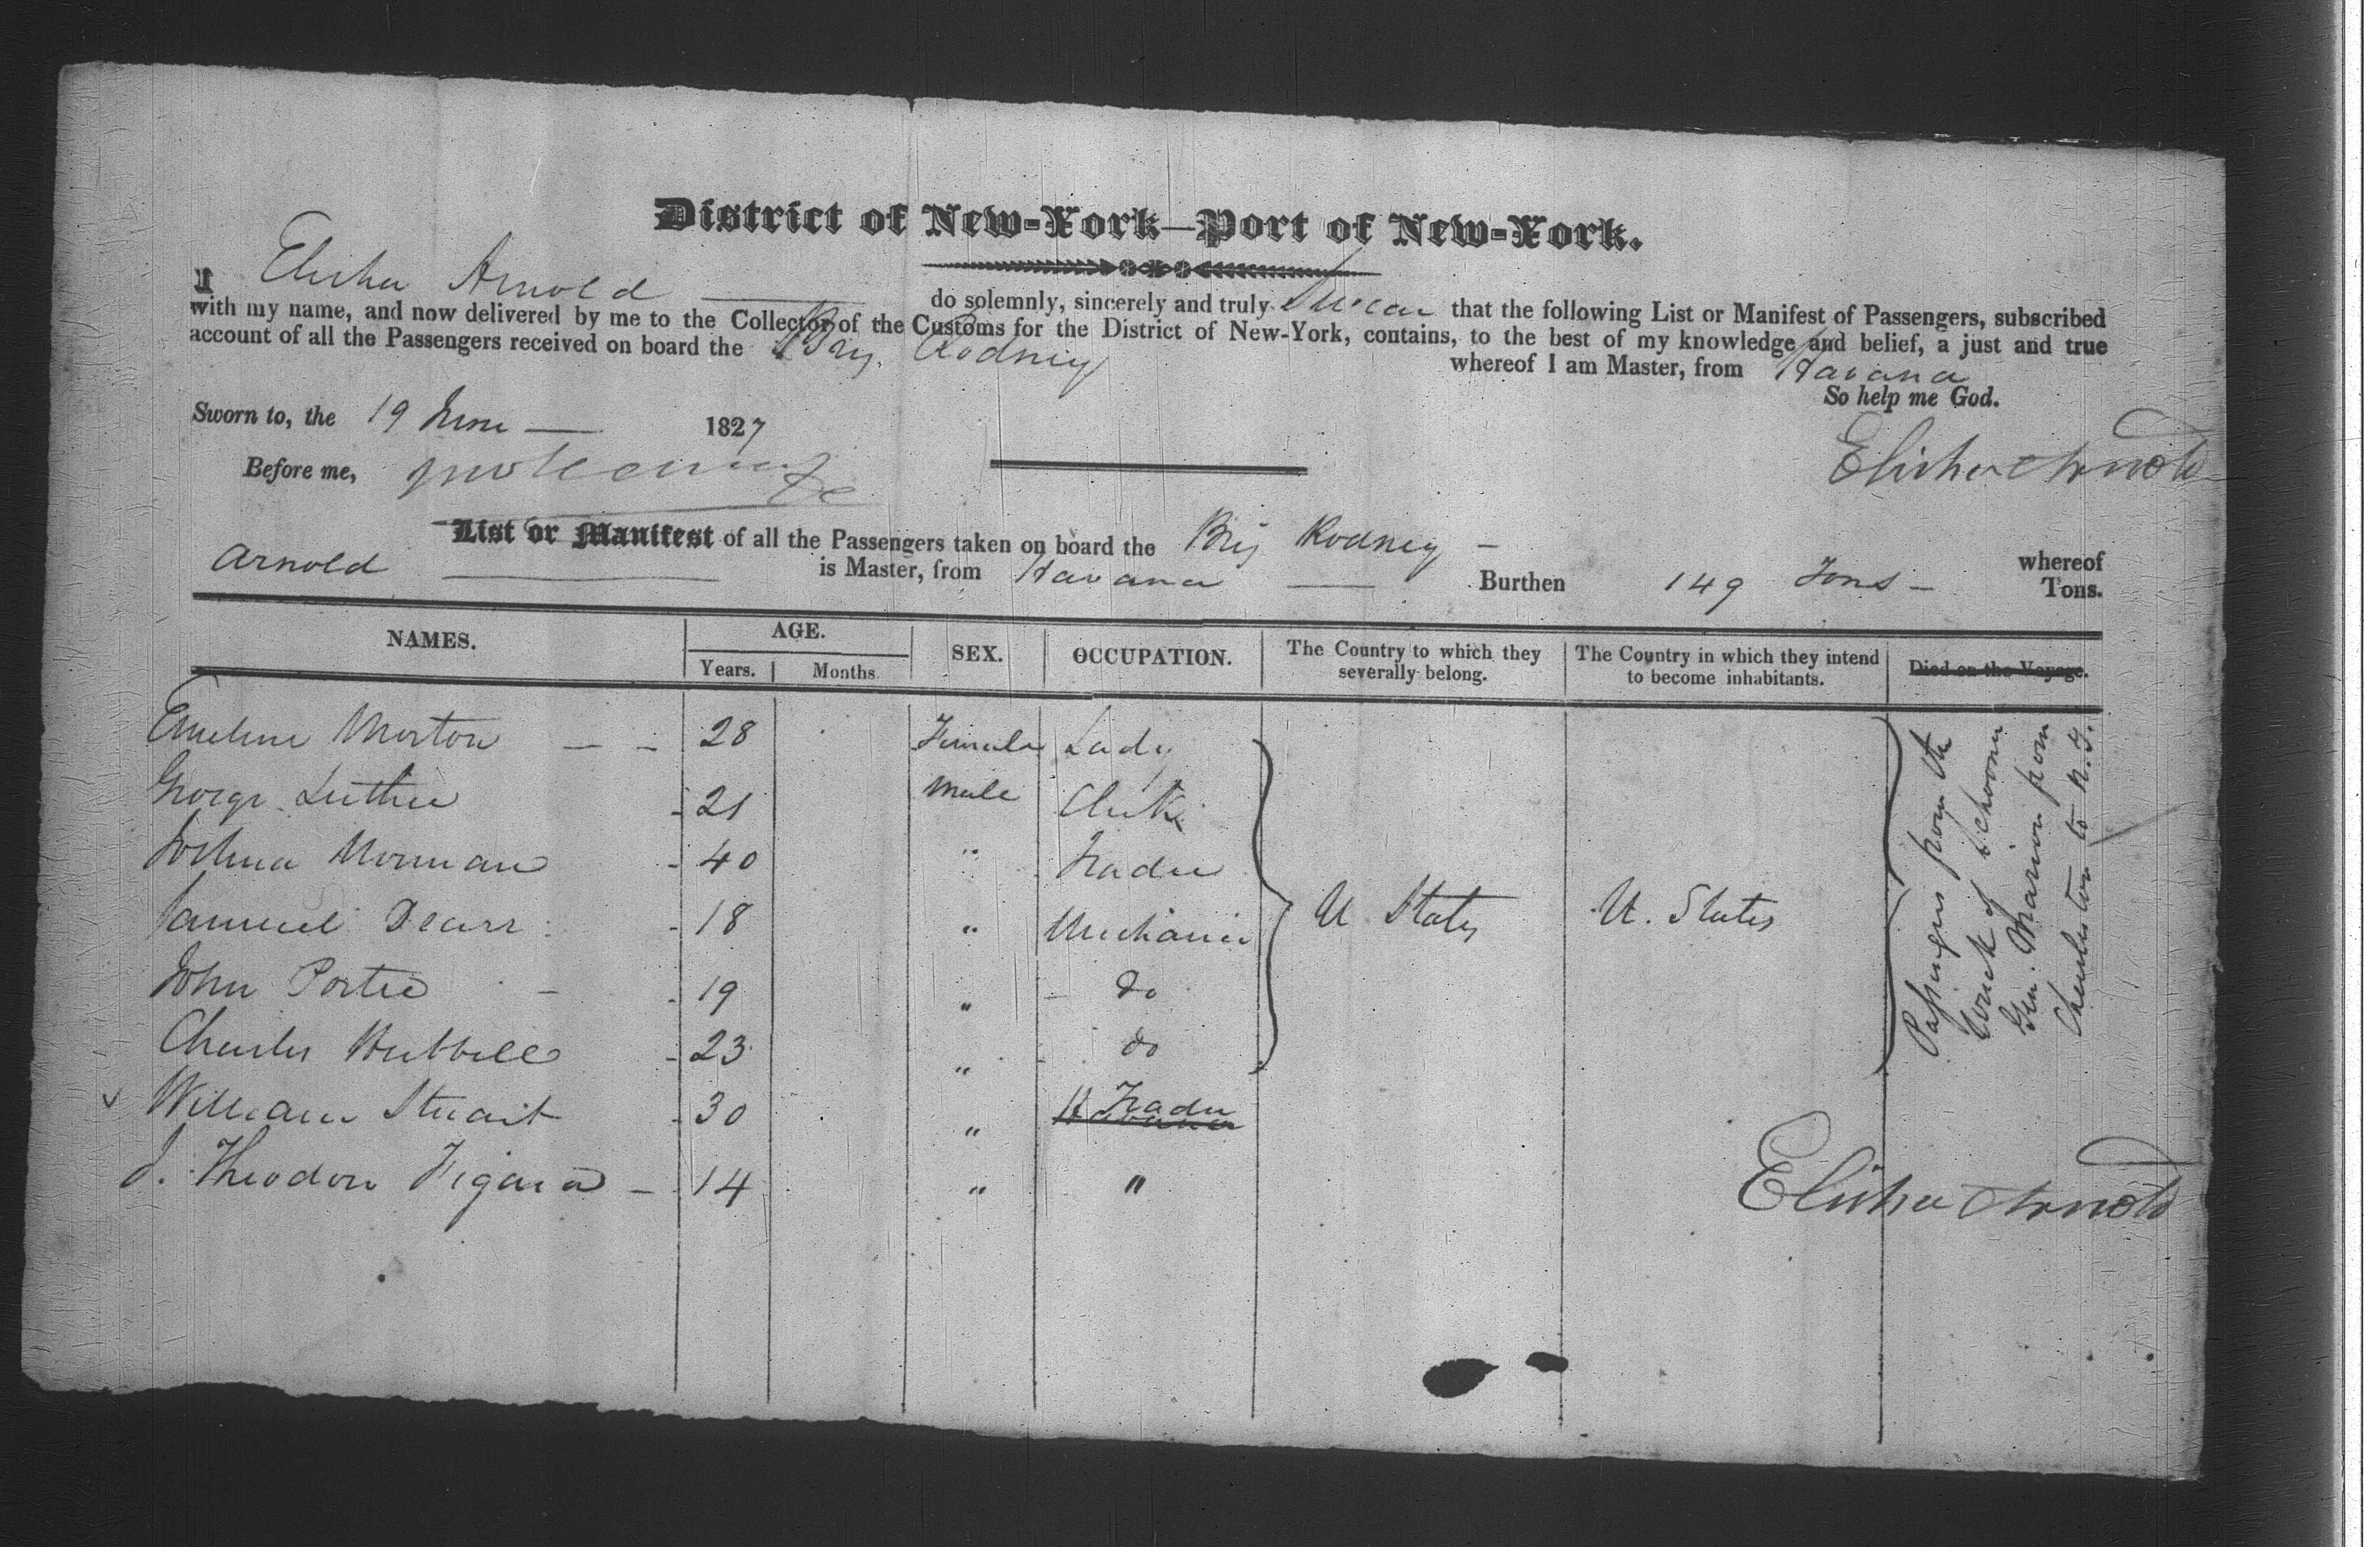 District of New-York—Port of New-York.
I Elisha Arnold do solemnly, sincerely and truly Swear that the following List or Manifest of Passengers, subscribed
with my name, and now delivered by me to the Collector of the Customs for the District of New-York, contains, to the best of my knowledge and belief, a just and true
account of all the Passengers received on board the Brig Rodney whereof I am Master, from Havana
So help me God.
Sworn to, the 19 June 1827
Before me,
Elisha Arnold
List or Manifest of all the Passengers taken on board the Brig Rodney whereof
Arnold is Master, from Havana Burthen 149 Tons Tons.
NAMES. AGE. SEX. OCCUPATION. The Country to which they severally belong. The Country in which they intend to become inhabitants. Died on the Voyage.
Years. Months.
Emeline Morton 28 Female Lady
George Luther 21 Male Clerk
Joshua Norman 40 " Trader
Samuel 18 " Mechanic U States U. States
John Porter 19 " do
Charles Hubbell 23 " do
William Stuart 30 " Trader
J. Theodore Figara 14 " "
Passengers from the
Wreck of Schooner
Gen. Marion from
Charleston to N.Y.
Elisha Arnold